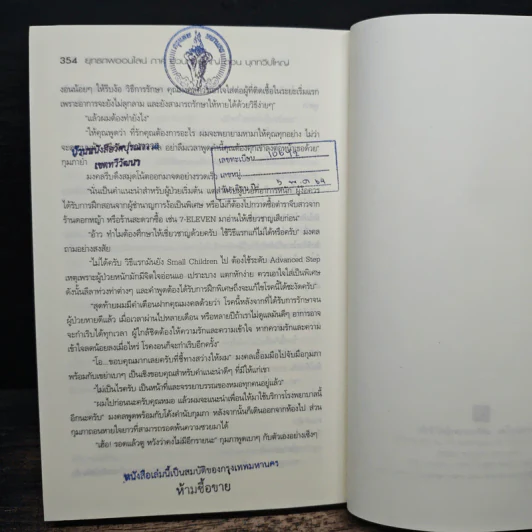 354 ยุทธภพออนไลน์ ภาค
บุกทวีปใหญ่
อ่อนน้อยๆ ให้รีบง้อ วิธีการรักษา
เพราะอาการจะยังไม่ลุกลาม และยังสามารถรักษาให้หายได้ด้วยวิธีง่ายๆ"
"แล้วผมต้องทำยังไง"
"ให้คุณพูดว่า ที่รักคุณต้องการอะไร ผมจะพยายามหามาให้คุณทุกอย่าง ไม่ว่า
กุมภาย้ำ
มงคลรีบดึงสมุดโน้ตออกมาจดอย่างรวดเร็ว
เลขทะเบียน
เลขหมู่
"นั่นเป็นคำแนะนำสำหรับผู้ป่วยเริ่มต้น
ร้านดอกหญ้า หรือร้านสะดวกซื้อ เช่น 7-ELEVEN มาอ่านให้เชี่ยวชาญเสียก่อน"
"อ้าว ทำไมต้องศึกษาให้เชี่ยวชาญด้วยครับ ใช้วิธีแรกแก้ไม่ได้หรือครับ" มงคล
ถามอย่างสงสัย
"ไม่ได้ครับ วิธีแรกมันยัง Small Children ไป ต้องใช้ระดับ Advanced Step
เหตุเพราะผู้ป่วยหนักมักมีจิตใจอ่อนแอ เปราะบาง แตกหักง่าย ควรเอาใจใส่เป็นพิเศษ
ดังนั้นลีลาท่วงท่าต่างๆ และคำพูดต้องได้รับการฝึกพิเศษถึงจะแก้ไขโรคนี้ได้ชะงัดครับ"
"สุดท้ายผมมีคำเตือนฝากคุณมงคลด้วยว่า โรคนี้หลังจากที่ได้รับการรักษาจน
ผู้ป่วยหายดีแล้ว เมื่อเวลาผ่านไปหลายเดือน หรือหลายปีถ้าเราไม่ดูแลมันดีๆ อาการอาจ
จะกำเริบได้ทุกเวลา ผู้ใกล้ชิดต้องให้ความรักและความเข้าใจ หากความรักและความ
เข้าใจลดน้อยลงเมื่อไหร่ โรคงอนก็จะกำเริบอีกครั้ง"
"โอ...ขอบคุณมากเลยครับที่ชี้ทางสว่างให้ผม" มงคลเอื้อมมือไปจับมือกุมภา
พร้อมกับเขย่าเบาๆ เป็นเชิงขอบคุณสำหรับคำแนะนำดีๆ ที่มีให้แก่เขา
"ไม่เป็นไรครับ เป็นหน้าที่และจรรยาบรรณของหมอทุกคนอยู่แล้ว"
"ผมไปก่อนนะครับคุณหมอ แล้วผมจะแนะนำเพื่อนให้มาใช้บริการโรงพยาบาลนี้
อีกนะครับ" มงคลพูดพร้อมกับโค้งคำนับกุมภา หลังจากนั้นก็เดินออกจากห้องไป ส่วน
กุมภาถอนหายใจยาวที่สามารถรอดพ้นความซวยมาได้
"เฮ้อ! รอดแล้วตู หวังว่าคงไม่มีอีกรายนะ" กุมภาพูดเบาๆ กับตัวเองอย่างเซ็งๆ
หนังสือเล่มนี้เป็นสมบัติของกรุงเทพมหานคร
ห้ามซื้อขาย